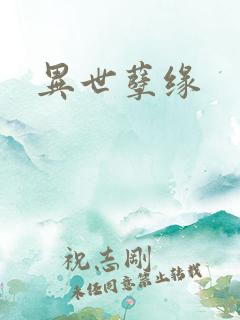 異世孽缘
祝志剛
未任同意禁止转载